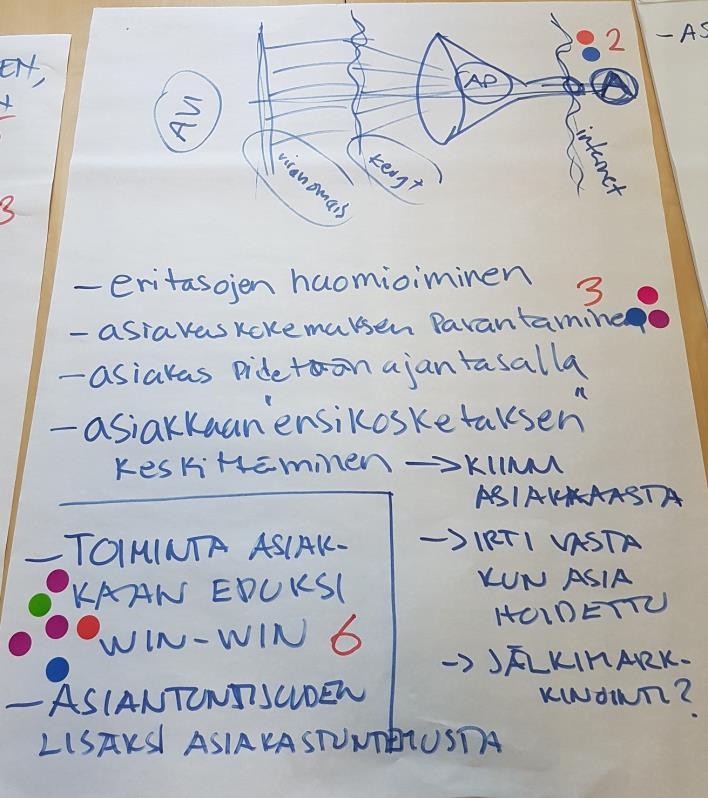 EN,
3
- AS
AVI
viranomais
kengt
AP
2
A
internet
- eritasojen huomioiminen
3
- asiakaskokemuksen parantaminen
- asiakas pidetään ajantasalla
- asiakkaan "ensikosketuksen"
keskittäminen -> KIINNI
ASIAKKAASTA
-> IRTI VASTA
KUN ASIA
HOIDETTU
-> JÄLKIMARK-
KINOINTI?
- TOIMINTA ASIAK-
KAAN EDUKSI
WIN-WIN 6
- ASIANTUNTIJUUDEN
LISÄKSI ASIAKASTUNTEMUSTA